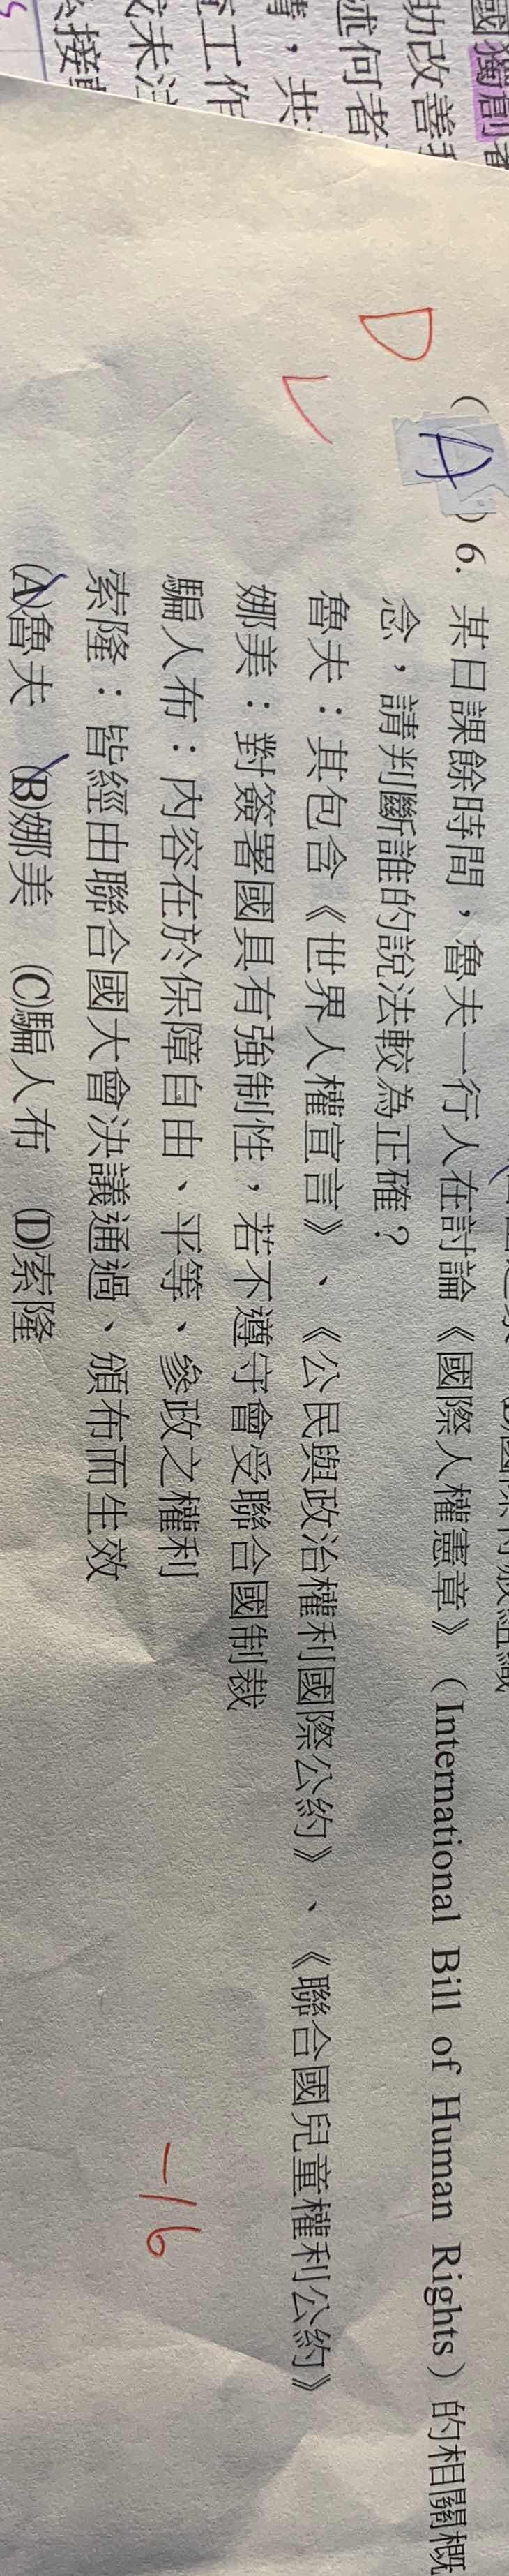 國獨創者
助改善我
述何者
責，共
立工作
未注
接
D
( A ) 6. 某日課餘時間，魯夫一行人在討論《國際人權憲章》（International Bill of Human Rights）的相關概
念，請判斷誰的說法較為正確？
魯夫：其包含《世界人權宣言》、《公民與政治權利國際公約》、《聯合國兒童權利公約》
娜美：對簽署國具有強制性，若不遵守會受聯合國制裁
騙人布：內容在於保障自由、平等、參政之權利
索隆：皆經由聯合國大會決議通過、頒布而生效
(A)魯夫 (B)娜美 (C)騙人布 (D)索隆
-16